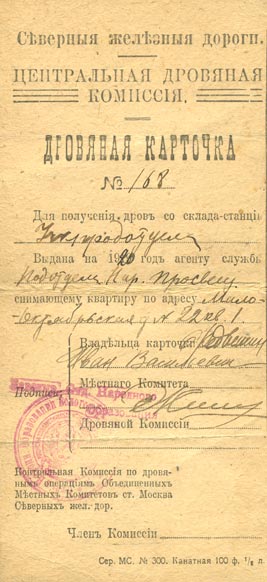 Сѣверныя желѣзныя дороги.
ЦЕНТРАЛЬНАЯ ДРОВЯНАЯ
КОМИССІЯ.
ДРОВЯНАЯ КАРТОЧКА
№ 168
Для полученія дровъ со склада-станціи
Выдана на 1920 годъ агенту службы
Подотдела Нар. Просвещ
снимающему квартиру по адресу Мало-
Октябрьская д № 22 кв. 1
Владѣльца карточки
Иван Васильевич
Мѣстнаго Комитета
Подписи
Дровяной Комиссіи
Контрольная Комиссія по дровя-
нымъ операціямъ Объединенныхъ
Мѣстныхъ Комитетовъ ст. Москва
Сѣверныхъ жел. дор.
Членъ Комиссіи
Сер. МС. № 300. Канатная 100 ф. 1/8 л.